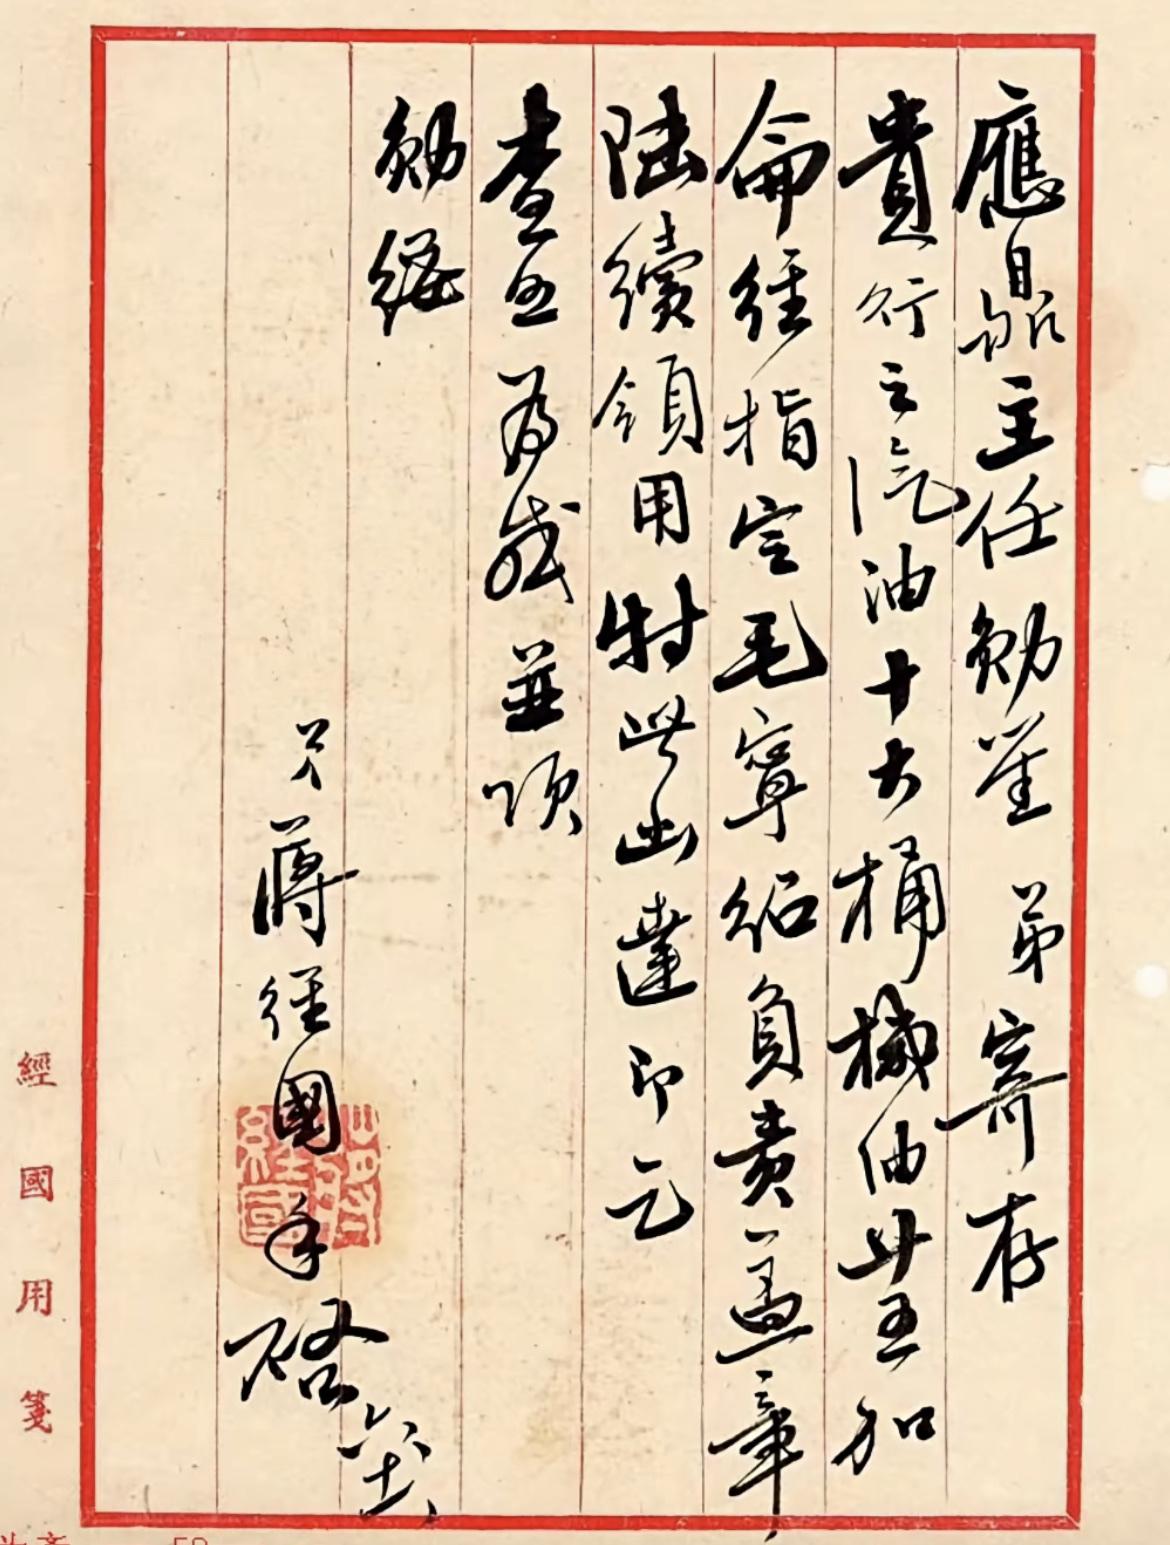 應鼎主任勛鑒 弟寄存
貴行之汽油十大桶機油廿五加
侖經指定毛寧紹負責蓋章
陸續領用特此函達即乞
查照為感並頌
勛綏
弟蔣經國手啓
六廿
經國用箋